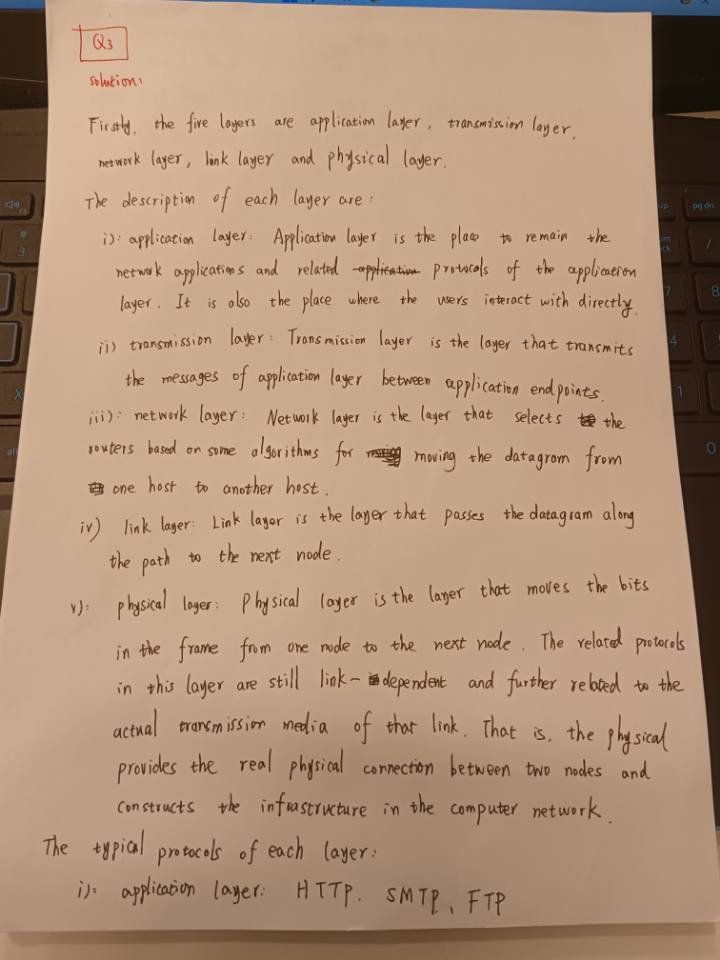 Q3
solution:
Firstly, the five layers are application layer, transmission layer,
network layer, link layer and physical layer.
The description of each layer are:
i): application layer: Application layer is the place to remain the
network applications and related application protocols of the application
layer. It is also the place where the users interact with directly.
ii) transmission layer: Transmission layer is the layer that transmits
the messages of application layer between application endpoints.
iii): network layer: Network layer is the layer that selects the
routers based on some algorithms for moving the datagram from
one host to another host.
iv) link layer: Link layer is the layer that passes the datagram along
the path to the next node.
v): physical layer: Physical layer is the layer that moves the bits
in the frame from one node to the next node. The related protocols
in this layer are still link-dependent and further related to the
actual transmission media of that link. That is, the physical
provides the real physical connection between two nodes and
constructs the infrastructure in the computer network.
The typical protocols of each layer:
i): application layer: HTTP. SMTP, FTP
pg dn